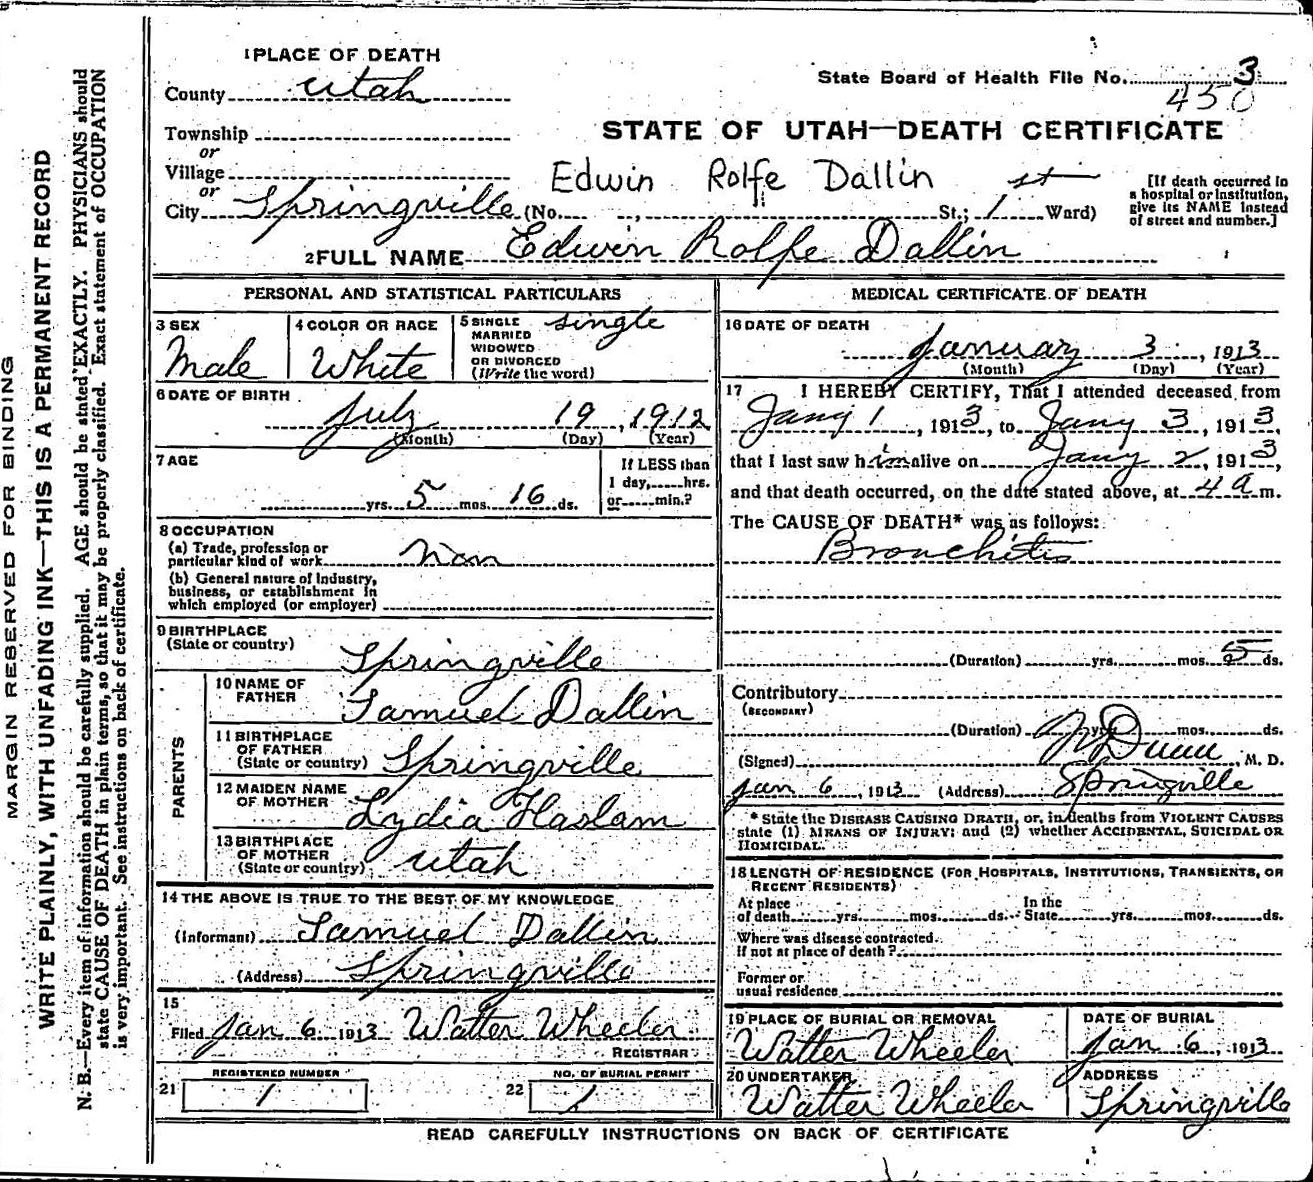 MARGIN RESERVED FOR BINDING
WRITE PLAINLY, WITH UNFADING INK—THIS IS A PERMANENT RECORD
N. B.—Every item of information should be carefully supplied. AGE should be stated EXACTLY. PHYSICIANS should
state CAUSE OF DEATH in plain terms, so that it may be properly classified. Exact statement of OCCUPATION
is very important. See instructions on back of certificate.
1 PLACE OF DEATH
County Utah
Township
or
Village
or
City Springville (No. , St.; 1 st Ward)
State Board of Health File No. 3
450
STATE OF UTAH—DEATH CERTIFICATE
Edwin Rolfe Dallin
[If death occurred in
a hospital or institution,
give its NAME instead
of street and number.]
2 FULL NAME Edwin Rolfe Dallin
PERSONAL AND STATISTICAL PARTICULARS
3 SEX
Male
4 COLOR OR RACE
White
5 SINGLE
MARRIED
WIDOWED
OR DIVORCED
(Write the word)
single
6 DATE OF BIRTH
July 19, 1912
(Month) (Day) (Year)
7 AGE
yrs. 5 mos. 16 ds.
If LESS than
1 day, hrs.
or min.?
8 OCCUPATION
(a) Trade, profession or
particular kind of work non
(b) General nature of Industry,
business, or establishment in
which employed (or employer)
9 BIRTHPLACE
(State or country)
Springville
PARENTS
10 NAME OF
FATHER Samuel Dallin
11 BIRTHPLACE
OF FATHER
(State or country) Springville
12 MAIDEN NAME
OF MOTHER Lydia Haslam
13 BIRTHPLACE
OF MOTHER
(State or country) Utah
14 THE ABOVE IS TRUE TO THE BEST OF MY KNOWLEDGE
(Informant) Samuel Dallin
(Address) Springville
15
Filed Jan 6 1913 Walter Wheeler
REGISTRAR
21 REGISTERED NUMBER
1
22 NO. OF BURIAL PERMIT
1
MEDICAL CERTIFICATE OF DEATH
16 DATE OF DEATH
January 3, 1913
(Month) (Day) (Year)
17 I HEREBY CERTIFY, That I attended deceased from
Jany 1, 1913, to Jany 3, 1913,
that I last saw him alive on Jany 2, 1913,
and that death occurred, on the date stated above, at 4 a m.
The CAUSE OF DEATH* was as follows:
Bronchitis
(Duration) yrs. mos. 5 ds.
Contributory
(SECONDARY)
(Duration) yrs. mos. ds.
(Signed) Dunn, M. D.
Jan 6, 1913 (Address) Springville
* State the DISEASE CAUSING DEATH, or, in deaths from VIOLENT CAUSES
state (1) MEANS OF INJURY; and (2) whether ACCIDENTAL, SUICIDAL OR
HOMICIDAL.
18 LENGTH OF RESIDENCE (FOR HOSPITALS, INSTITUTIONS, TRANSIENTS, OR
RECENT RESIDENTS)
At place
of death yrs. mos. ds. In the
State yrs. mos. ds.
Where was disease contracted
if not at place of death?
Former or
usual residence
19 PLACE OF BURIAL OR REMOVAL
Walter Wheeler
DATE OF BURIAL
Jan 6, 1913
20 UNDERTAKER
Walter Wheeler
ADDRESS
Springville
READ CAREFULLY INSTRUCTIONS ON BACK OF CERTIFICATE